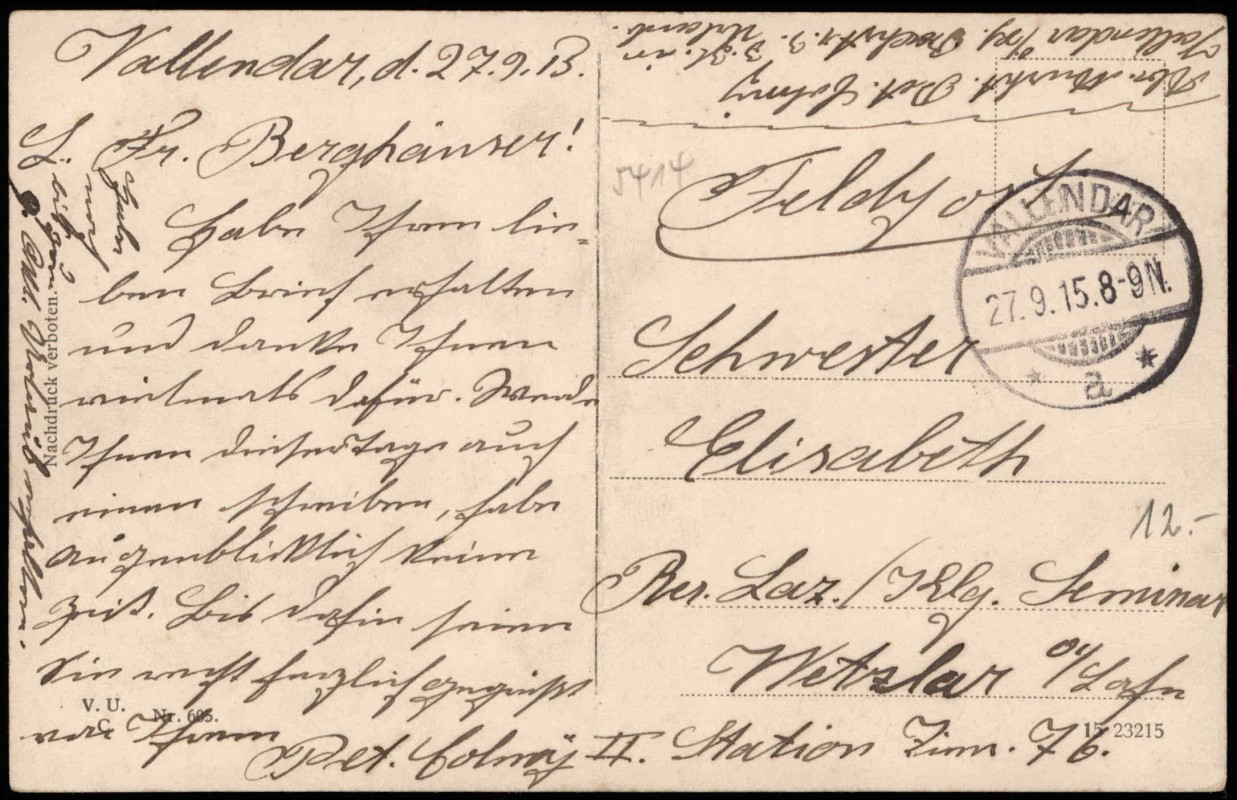 Vallendar, d. 27.9.15.
Fr. Berghäuser!
Habe Ihren lie-
ben Brief erhalten
und danke Ihnen
vielmals dafür. Werde
Ihnen dieser Tage auch
einen schreiben, habe
augenblicklich keine
Zeit. Bis dahin seien
Sie recht herzlich gegrüßt
von Ihrem
Pet. Colnÿ
Nachdruck verboten.
V. U.
C.
Nr. 605.
Abs. Musk. Pet. Colnÿ
Vallendar
Feldpost
5414
VALLENDAR
27.9.15.8-9N.
* a *
Schwester
Elisabeth
12.-
Res. Laz. / Klg. Seminar
Wetzlar a/Lahn
II. Station Zim. 76.
15 23215